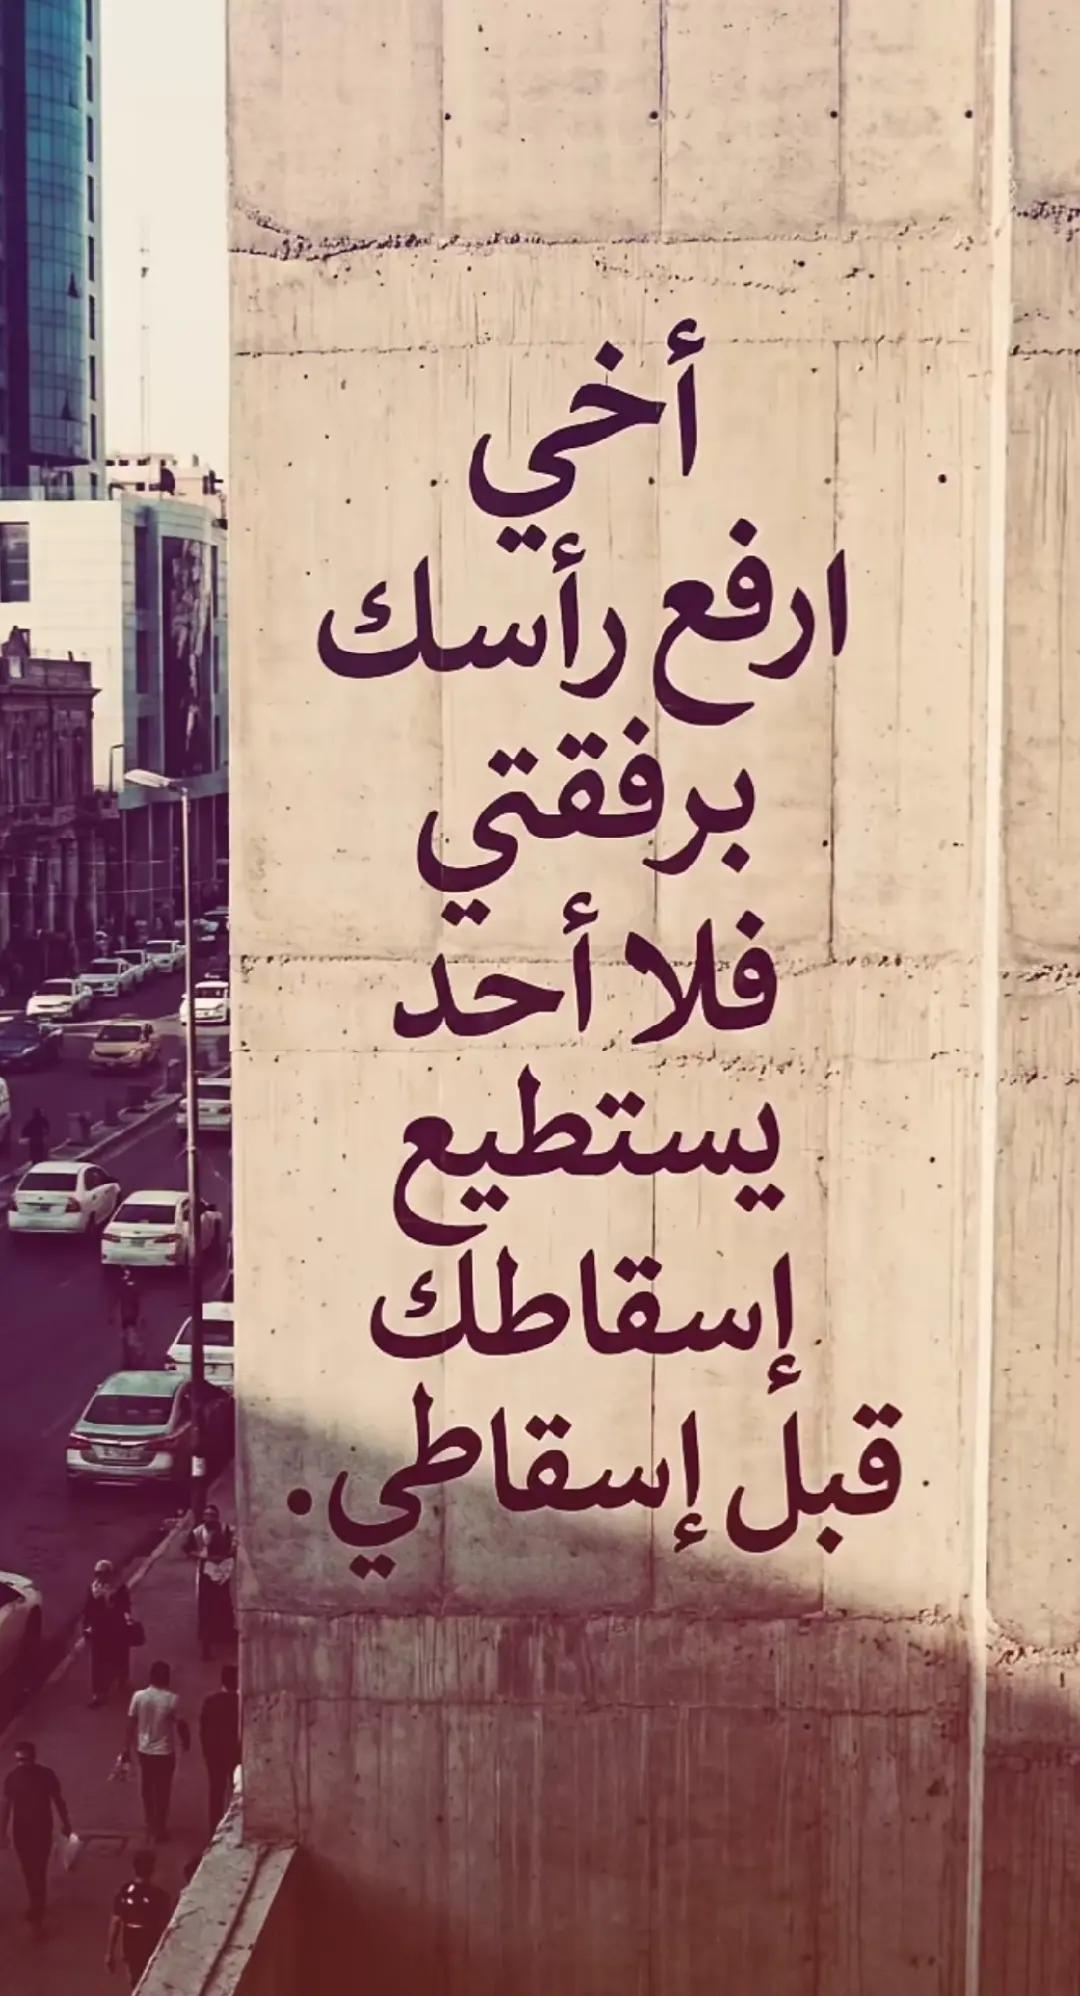 أخي
ارفع رأسك
برفقتي
فلا أحد
يستطيع
إسقاطك
قبل إسقاطي.